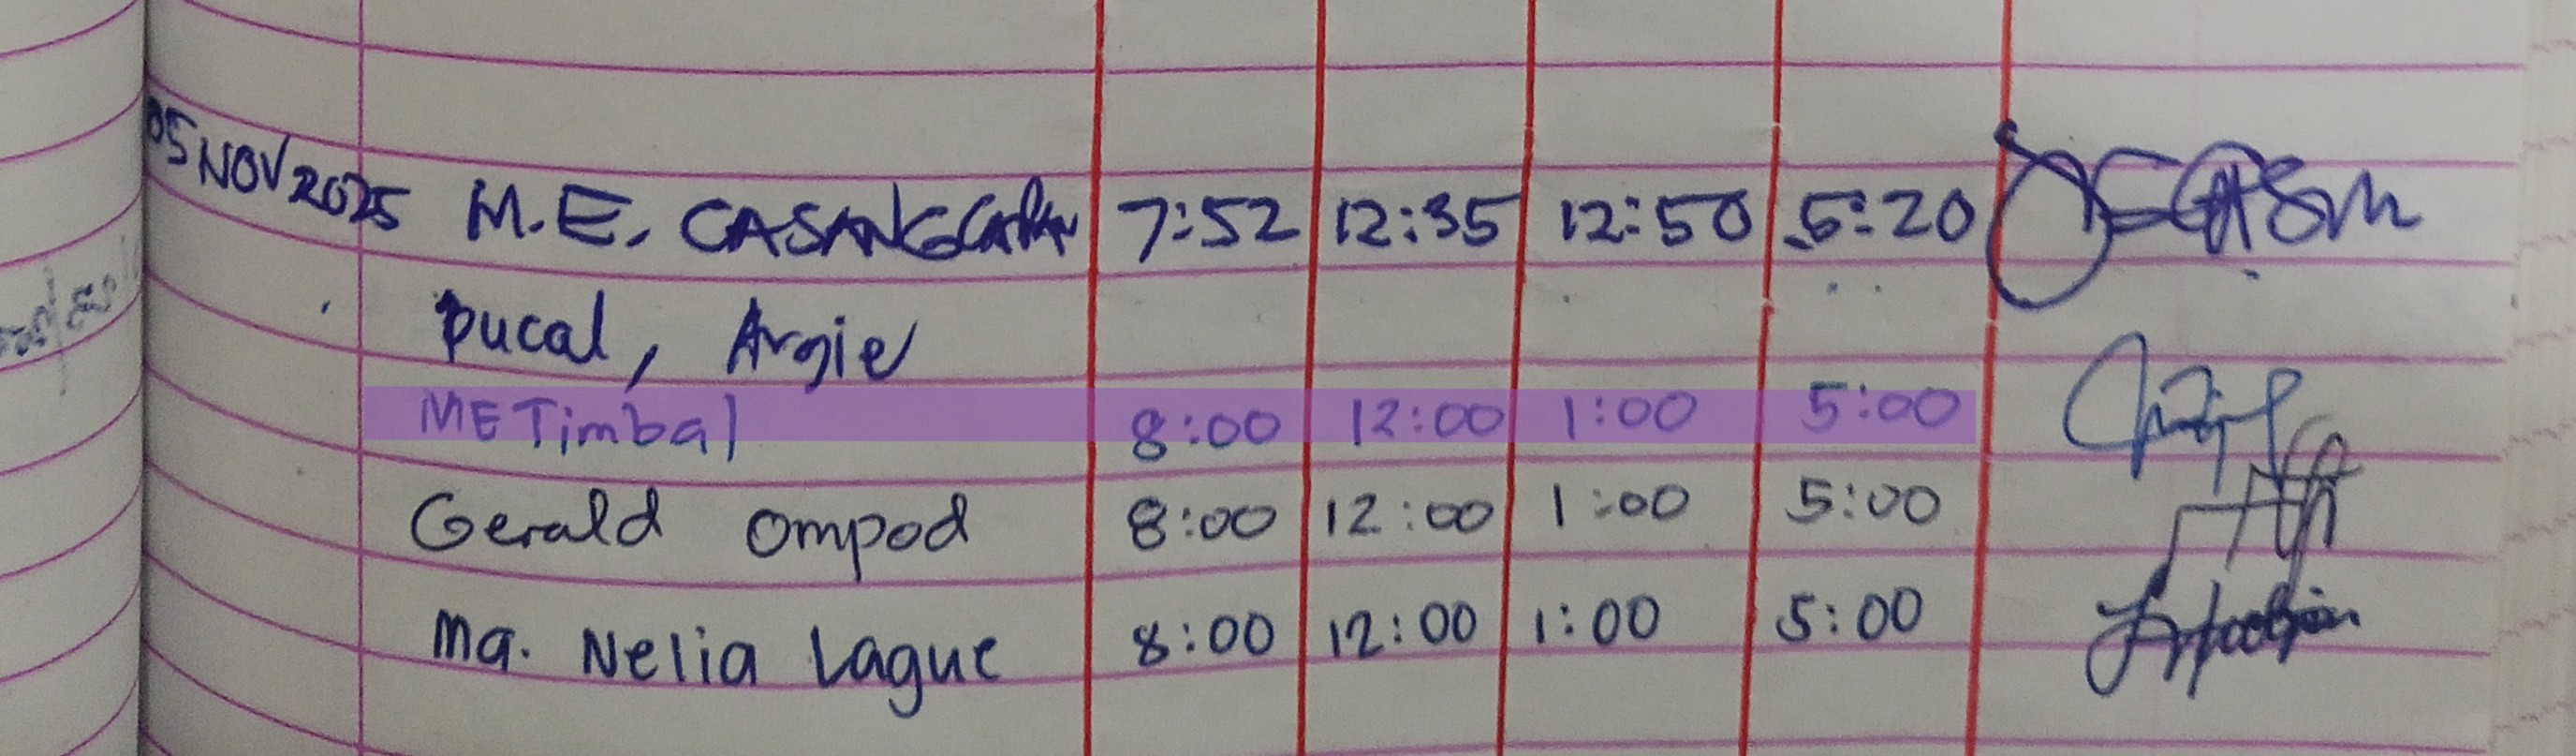 05 NOV 2025 M.E. CASANGCAPAN 7:52 12:35 12:50 5:20
Ducal, Argie
METimbal 8:00 12:00 1:00 5:00
Gerald Ompod 8:00 12:00 1:00 5:00
Ma. Nelia Lague 8:00 12:00 1:00 5:00